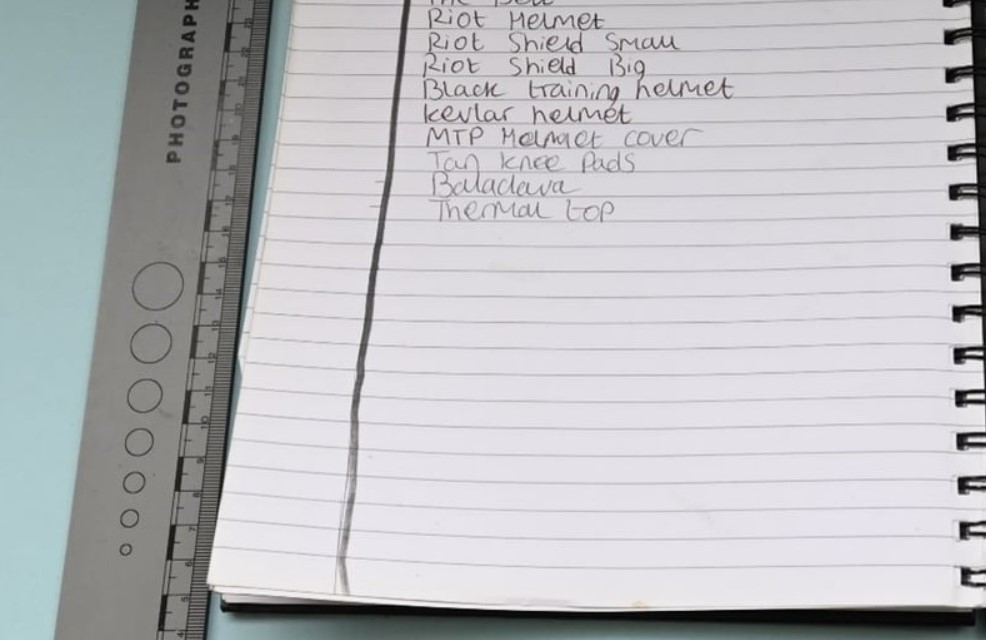 PHOTOGRAPH
Belt
Riot Helmet
Riot Shield Small
Riot Shield Big
Black training helmet
kevlar helmet
MTP Helmaet cover
Tan knee Pads
Balaclava
Thermal top